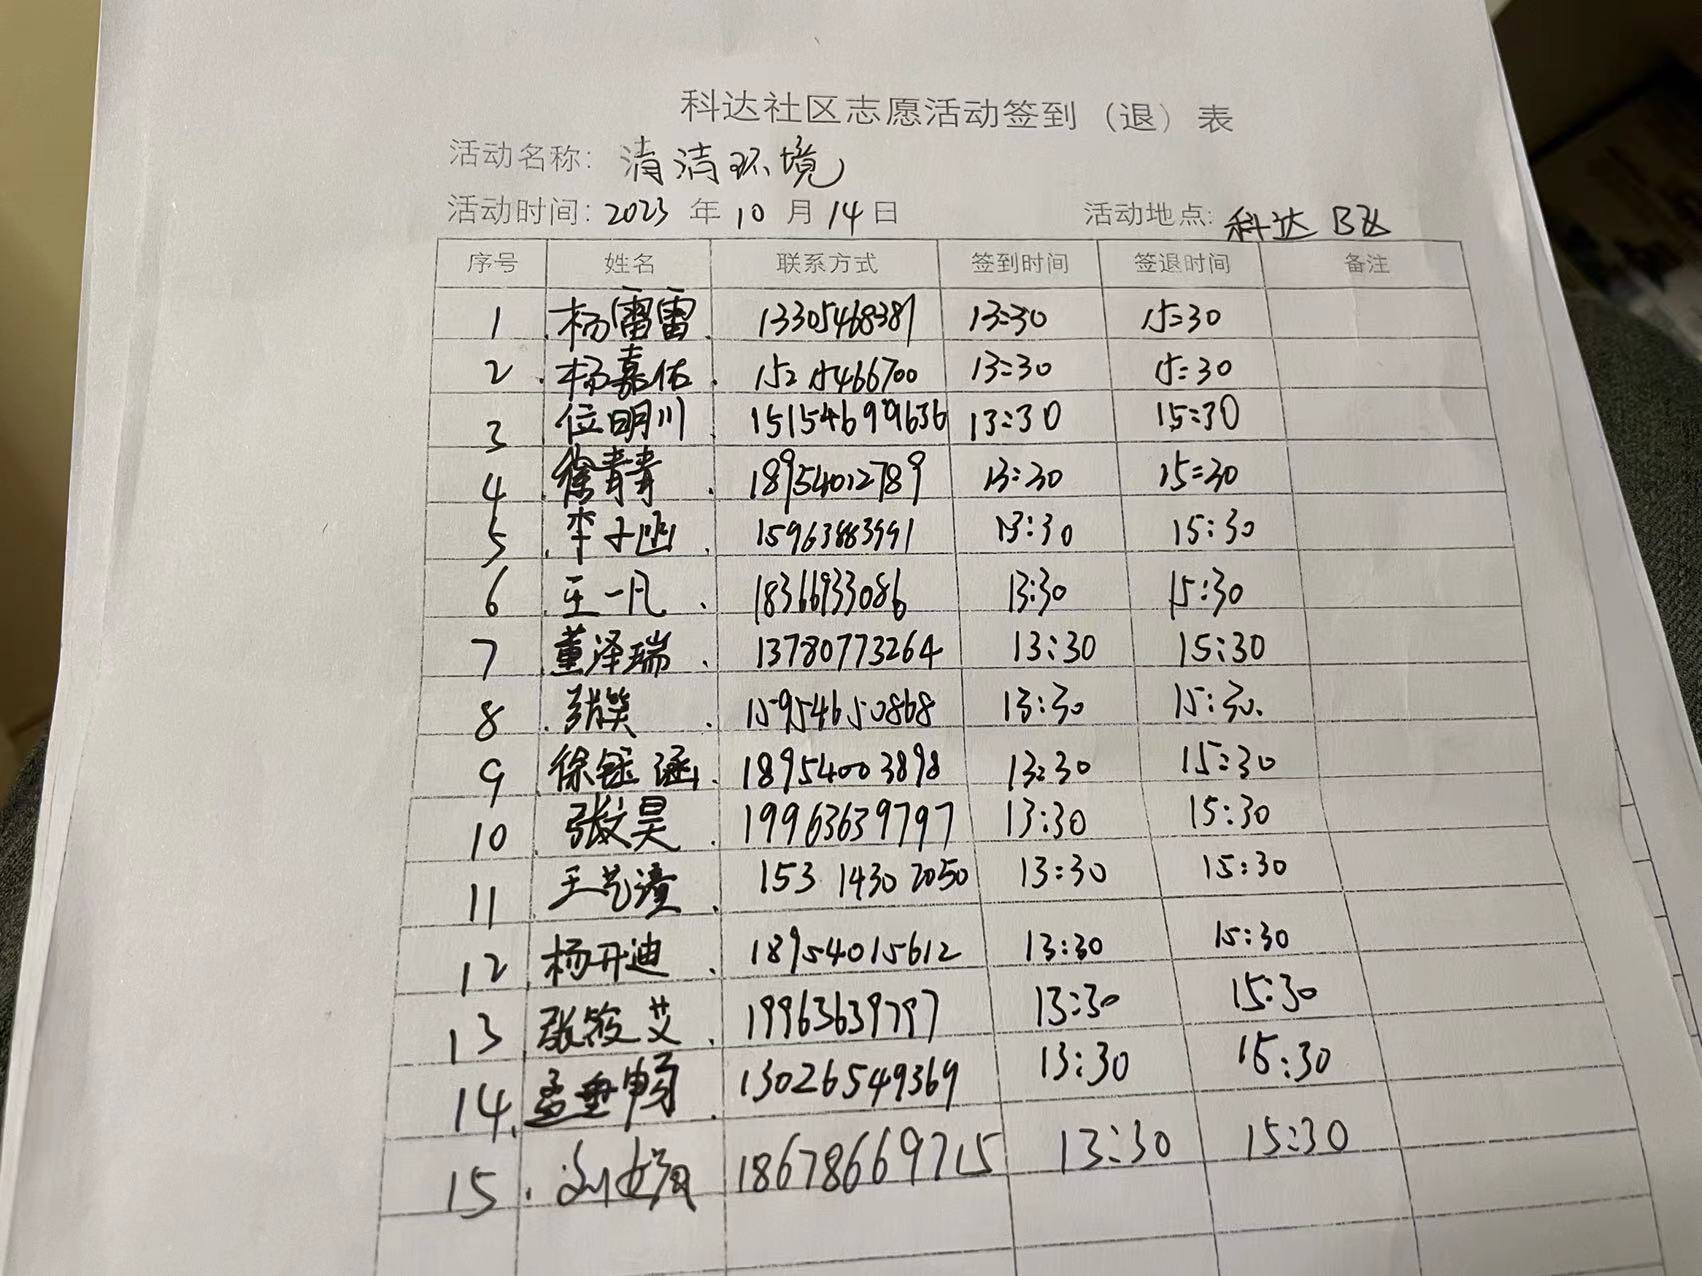 科达社区志愿活动签到（退）表
活动名称：清洁环境
活动时间：2023 年 10 月 14 日 活动地点：科达 B区
序号 姓名 联系方式 签到时间 签退时间 备注
1 杨雷雷 13305468381 13:30 15:30
2 杨嘉佑 15215466700 13:30 15:30
3 位明川 15154699636 13:30 15:30
4 徐青青 18954012789 13:30 15:30
5 李子涵 15963883991 13:30 15:30
6 王一凡 18366933086 13:30 15:30
7 董泽瑞 13780773264 13:30 15:30
8 张笑 15954650868 13:30 15:30.
9 徐钰涵 18954003898 13:30 15:30
10 张文昊 19963639797 13:30 15:30
11 王艺潼 153 1430 2050 13:30 15:30
12 杨开迪 18954015612 13:30 15:30
13 张筱艾 19963639797 13:30 15:30
14 孟垂畅 13026549369 13:30 15:30
15 18678669715 13:30 15:30